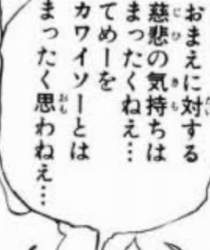 おまえに対する
慈悲の気持ちは
まったくねえ…
てめーを
カワイソーとは
まったく思わねえ…